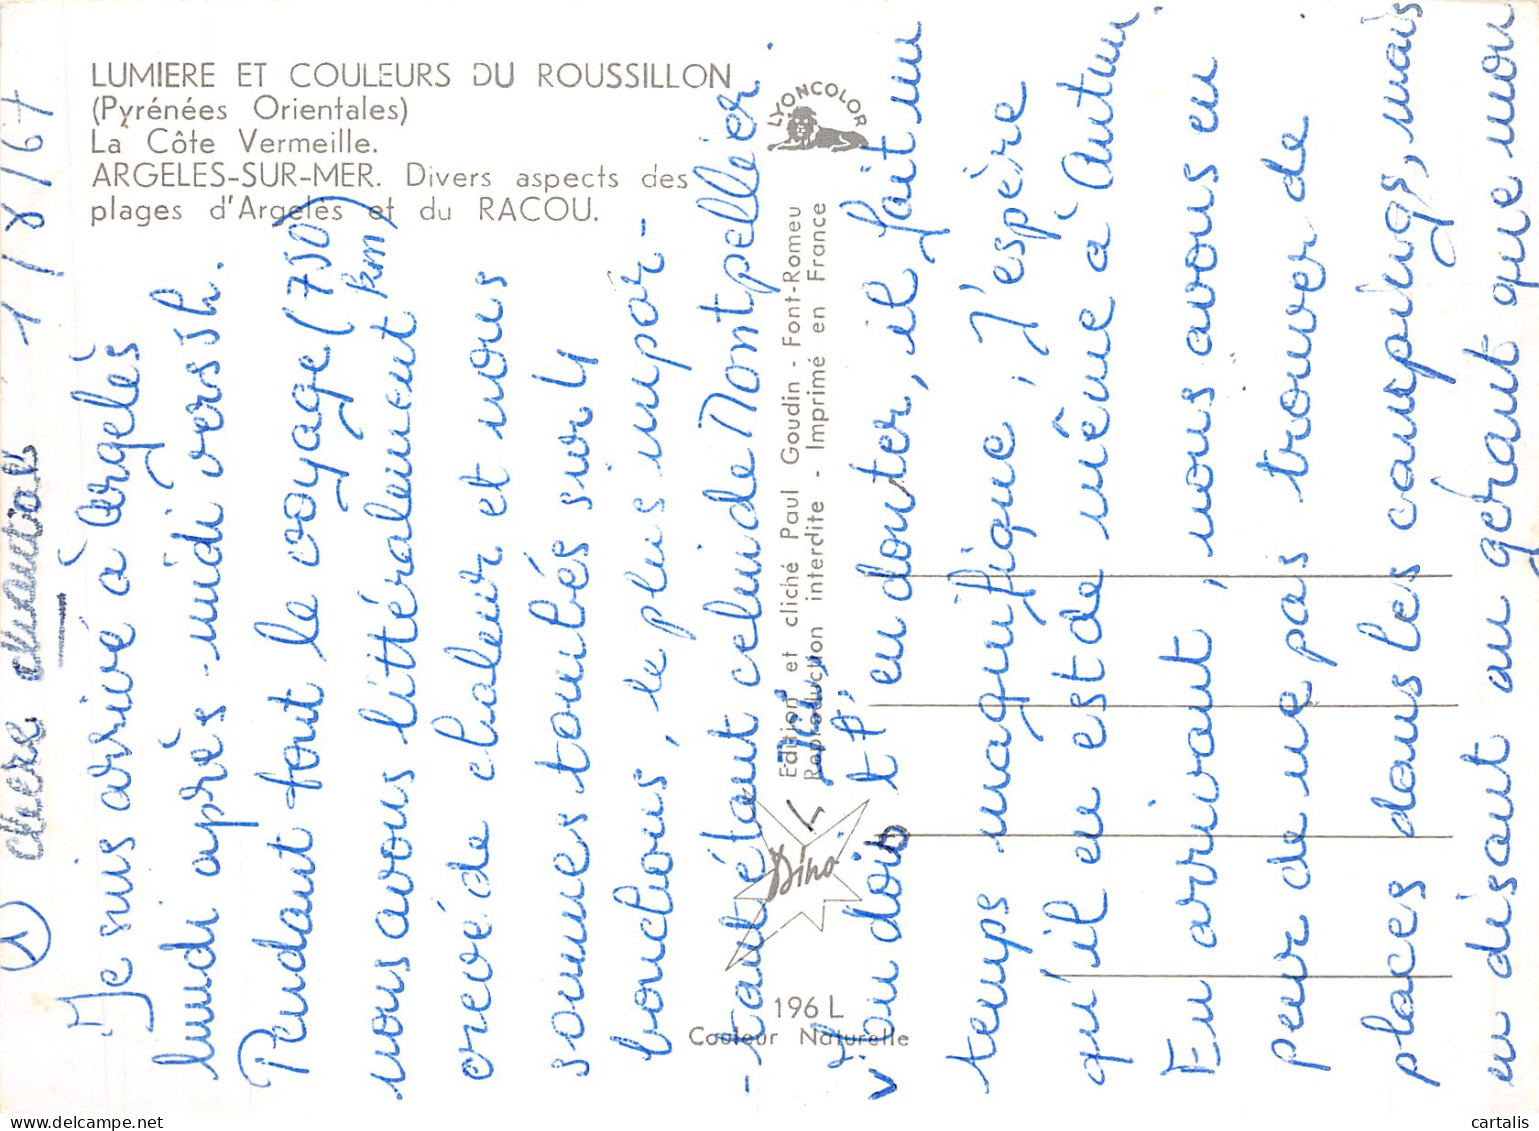 LUMIERE ET COULEURS DU ROUSSILLON
(Pyrénées Orientales)
La Côte Vermeille.
ARGELES-SUR-MER. Divers aspects des
plages d'Argelès et du RACOU.
LYONCOLOR
Edition et cliché Paul Goudin - Font-Romeu
Reproduction interdite - Imprimé en France
Dino
196 L
Couleur Naturelle
① chère chantal 1/8/67
Je suis arrivé à Argelès
lundi après-midi vers 5h.
Pendant tout le voyage (750
km)
nous avons littéralement
crevé de chaleur et nous
sommes tombés sur 4
bouchons, le plus impor-
-tant étant celui de Montpellier.
Ici,
v'l'on doit tt, en douter, il fait un
temps magnifique, J'espère
qu'il en est de même à Autun.
En arrivant, nous avons eu
peur de ne pas trouver de
places dans les campings, mais
en disant au gérant que nou
cartalis